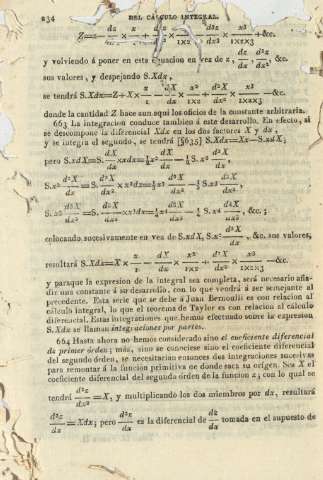 234 DEL CÁLCULO INTEGRAL.
Z=z− dz/dx × x/1 + d²z/dx² × x²/1×2 − d³z/dx³ × x³/1×2×3 +&c.
y volviendo á poner en esta equacion en vez de z, dz/dx, d²z/dx², &c.
sus valores, y despejando S.Xdx,
se tendrá S.Xdx=Z+X× x/1 − dX/dx × x²/1×2 + d²X/dx² × x³/1×2×3 −&c.
donde la cantidad Z hace aun aquí los oficios de la constante arbitraria.
663 La integracion conduce tambien á este desarrollo. En efecto, si
se descompone la diferencial Xdx en los dos factores X y dx,
y se integra el segundo, se tendrá [§635] S.Xdx=Xx−S.xdX;
pero S.xdX=S. dX/dx xdx=½x² dX/dx −½S.x² d²X/dx,
S.x² d²X/dx =S. d²X/dx² ×x²dx=⅓x³ d²X/dx² −⅓S.x³ d³X/dx²,
S.x³ d³X/dx² =S. d³X/dx³ ×x³dx=¼x⁴ d³X/dx³ −¼S.x⁴ d⁴X/dx³, &c.;
colocando sucesivamente en vez de S.xdX, S.x² d²X/dx, &c. sus valores,
resultará S.Xdx=X× x/1 − dX/dx × x²/1×2 + d²X/dx² × x³/1×2×3 −&c.
y paraque la expresion de la integral sea completa, será necesario aña-
dir una constante á su desarrollo, con lo que vendrá á ser semejante al
precedente. Esta serie que se debe á Juan Bernoulli es con relacion al
cálculo integral, lo que el teorema de Taylor es con relacion al cálculo
diferencial. Estas integraciones que hemos efectuado sobre la expresion
S.Xdx se llaman integraciones por partes.
664 Hasta ahora no hemos considerado sino el coeficiente diferencial
de primer órden; mas, sino se conociese sino el coeficiente diferencial
del segundo órden, se necesitarian entonces dos integraciones sucesivas
para remontar á la funcion primitiva de donde saca su orígen. Sea X el
coeficiente diferencial del segundo órden de la funcion z; con lo qual se
tendrá d²z/dx² =X, y multiplicando los dos miembros por dx, resultará
d²z/dx =Xdx; pero d²z/dx es la diferencial de dz/dx tomada en el supuesto de